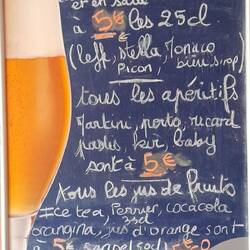 et en salle
à 5€ les 25cl
(leff, stella, Monaco
Picon bien sirop)
tous les apéritifs
Martini, porto, ricard
pastis, kir, baby
sont à 5€
tous les jus de fruits
Ice tea, Perrier, cocacola
33cl
orangina, jus d'orange sont
à 5€